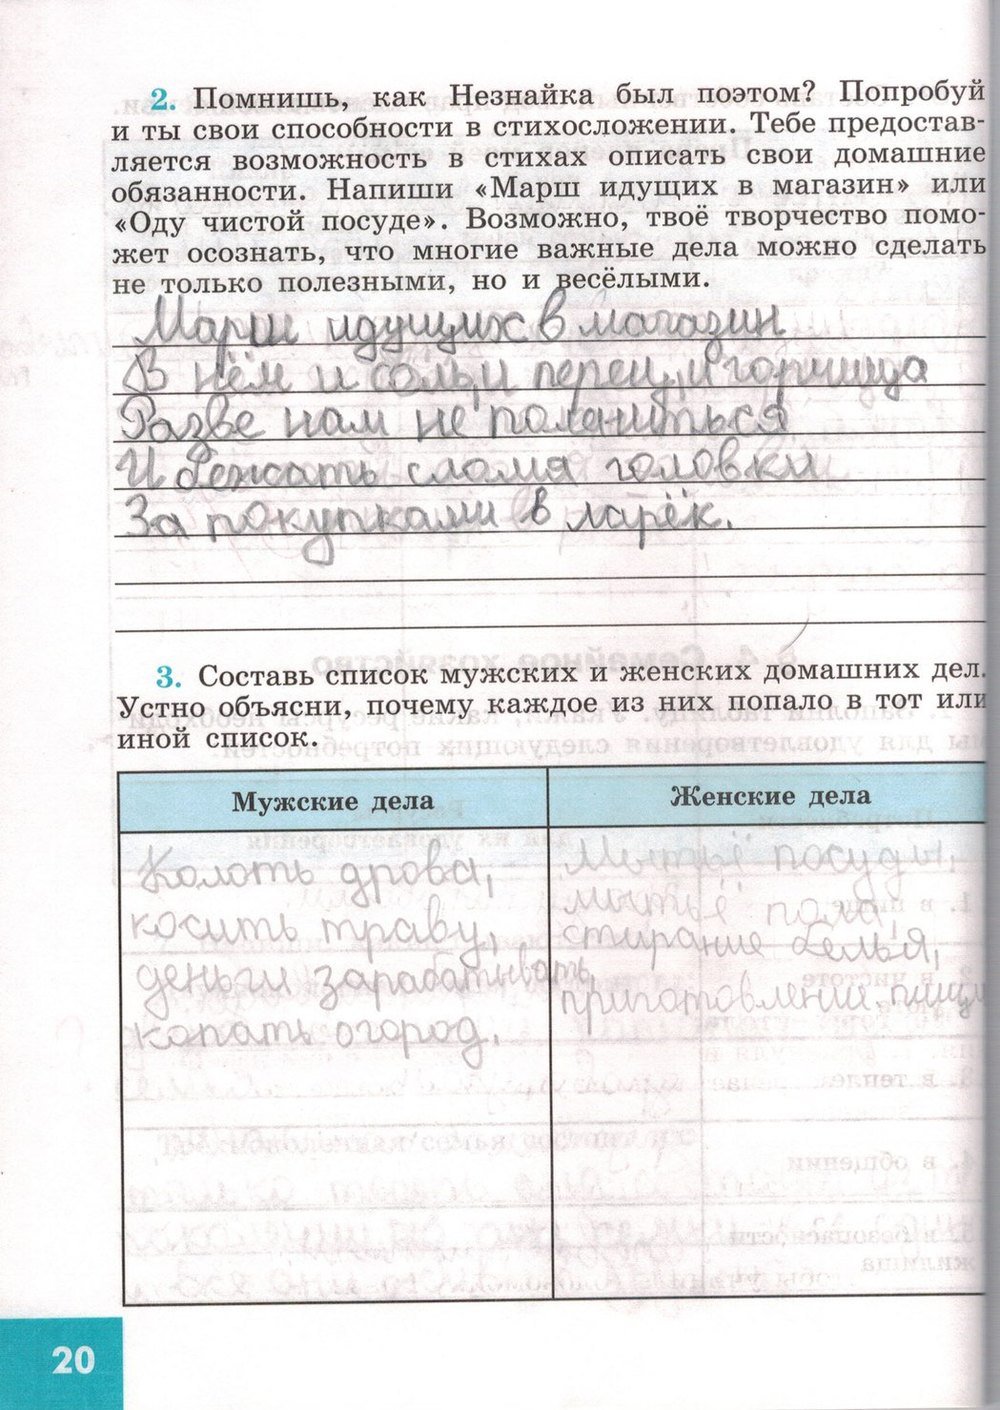 2. Помнишь, как Незнайка был поэтом? Попробуй
и ты свои способности в стихосложении. Тебе предостав-
ляется возможность в стихах описать свои домашние
обязанности. Напиши «Марш идущих в магазин» или
«Оду чистой посуде». Возможно, твоё творчество помо-
жет осознать, что многие важные дела можно сделать
не только полезными, но и весёлыми.
Марш идущих в магазин
В нём и соль, и перец, и горчица
Разве нам не полениться
И бежать сломя головки
За покупками в ларёк.
3. Составь список мужских и женских домашних дел.
Устно объясни, почему каждое из них попало в тот или
иной список.
Мужские дела
Женские дела
Колоть дрова,
косить траву,
деньги зарабатывать,
копать огород.
Мытьё посуды,
мытьё пола,
стирание белья,
приготовлений пищи
20